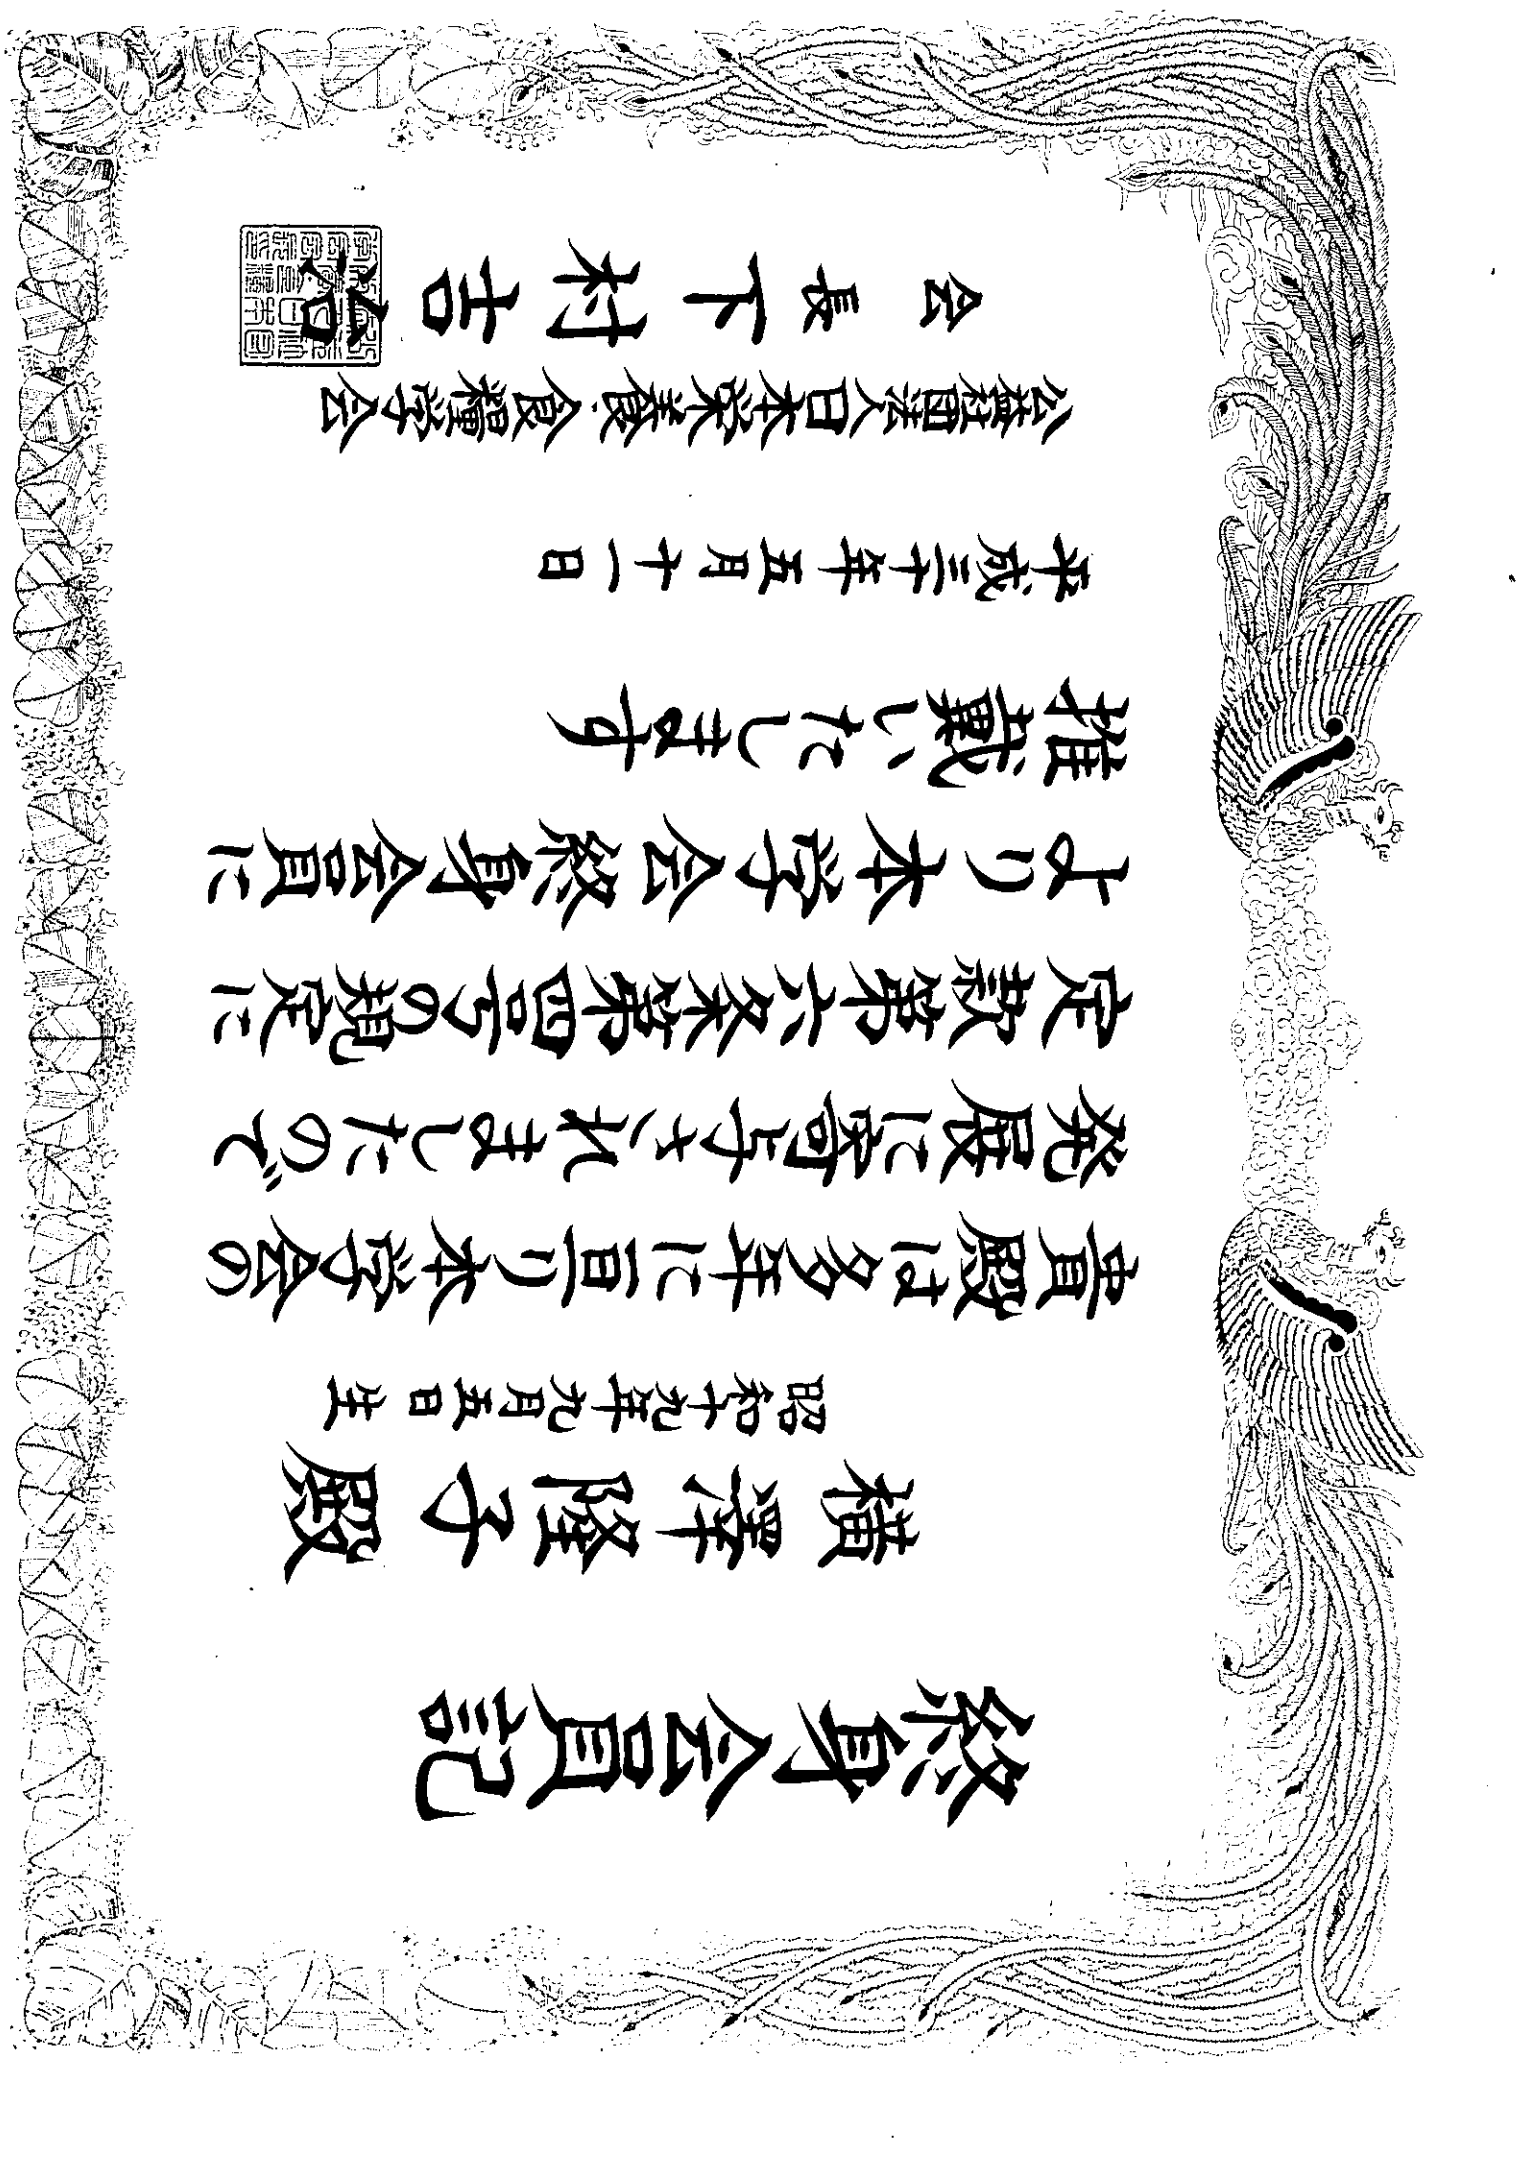 終身会員記
横澤隆子殿
昭和十九年九月五日生
貴殿は多年に亘り本学会の
発展に寄与されましたので
定款第六条第四号の規定に
より本学会終身会員に
推戴いたします
平成三十年五月十一日
公益社団法人日本栄養・食糧学会
会長下村吉治